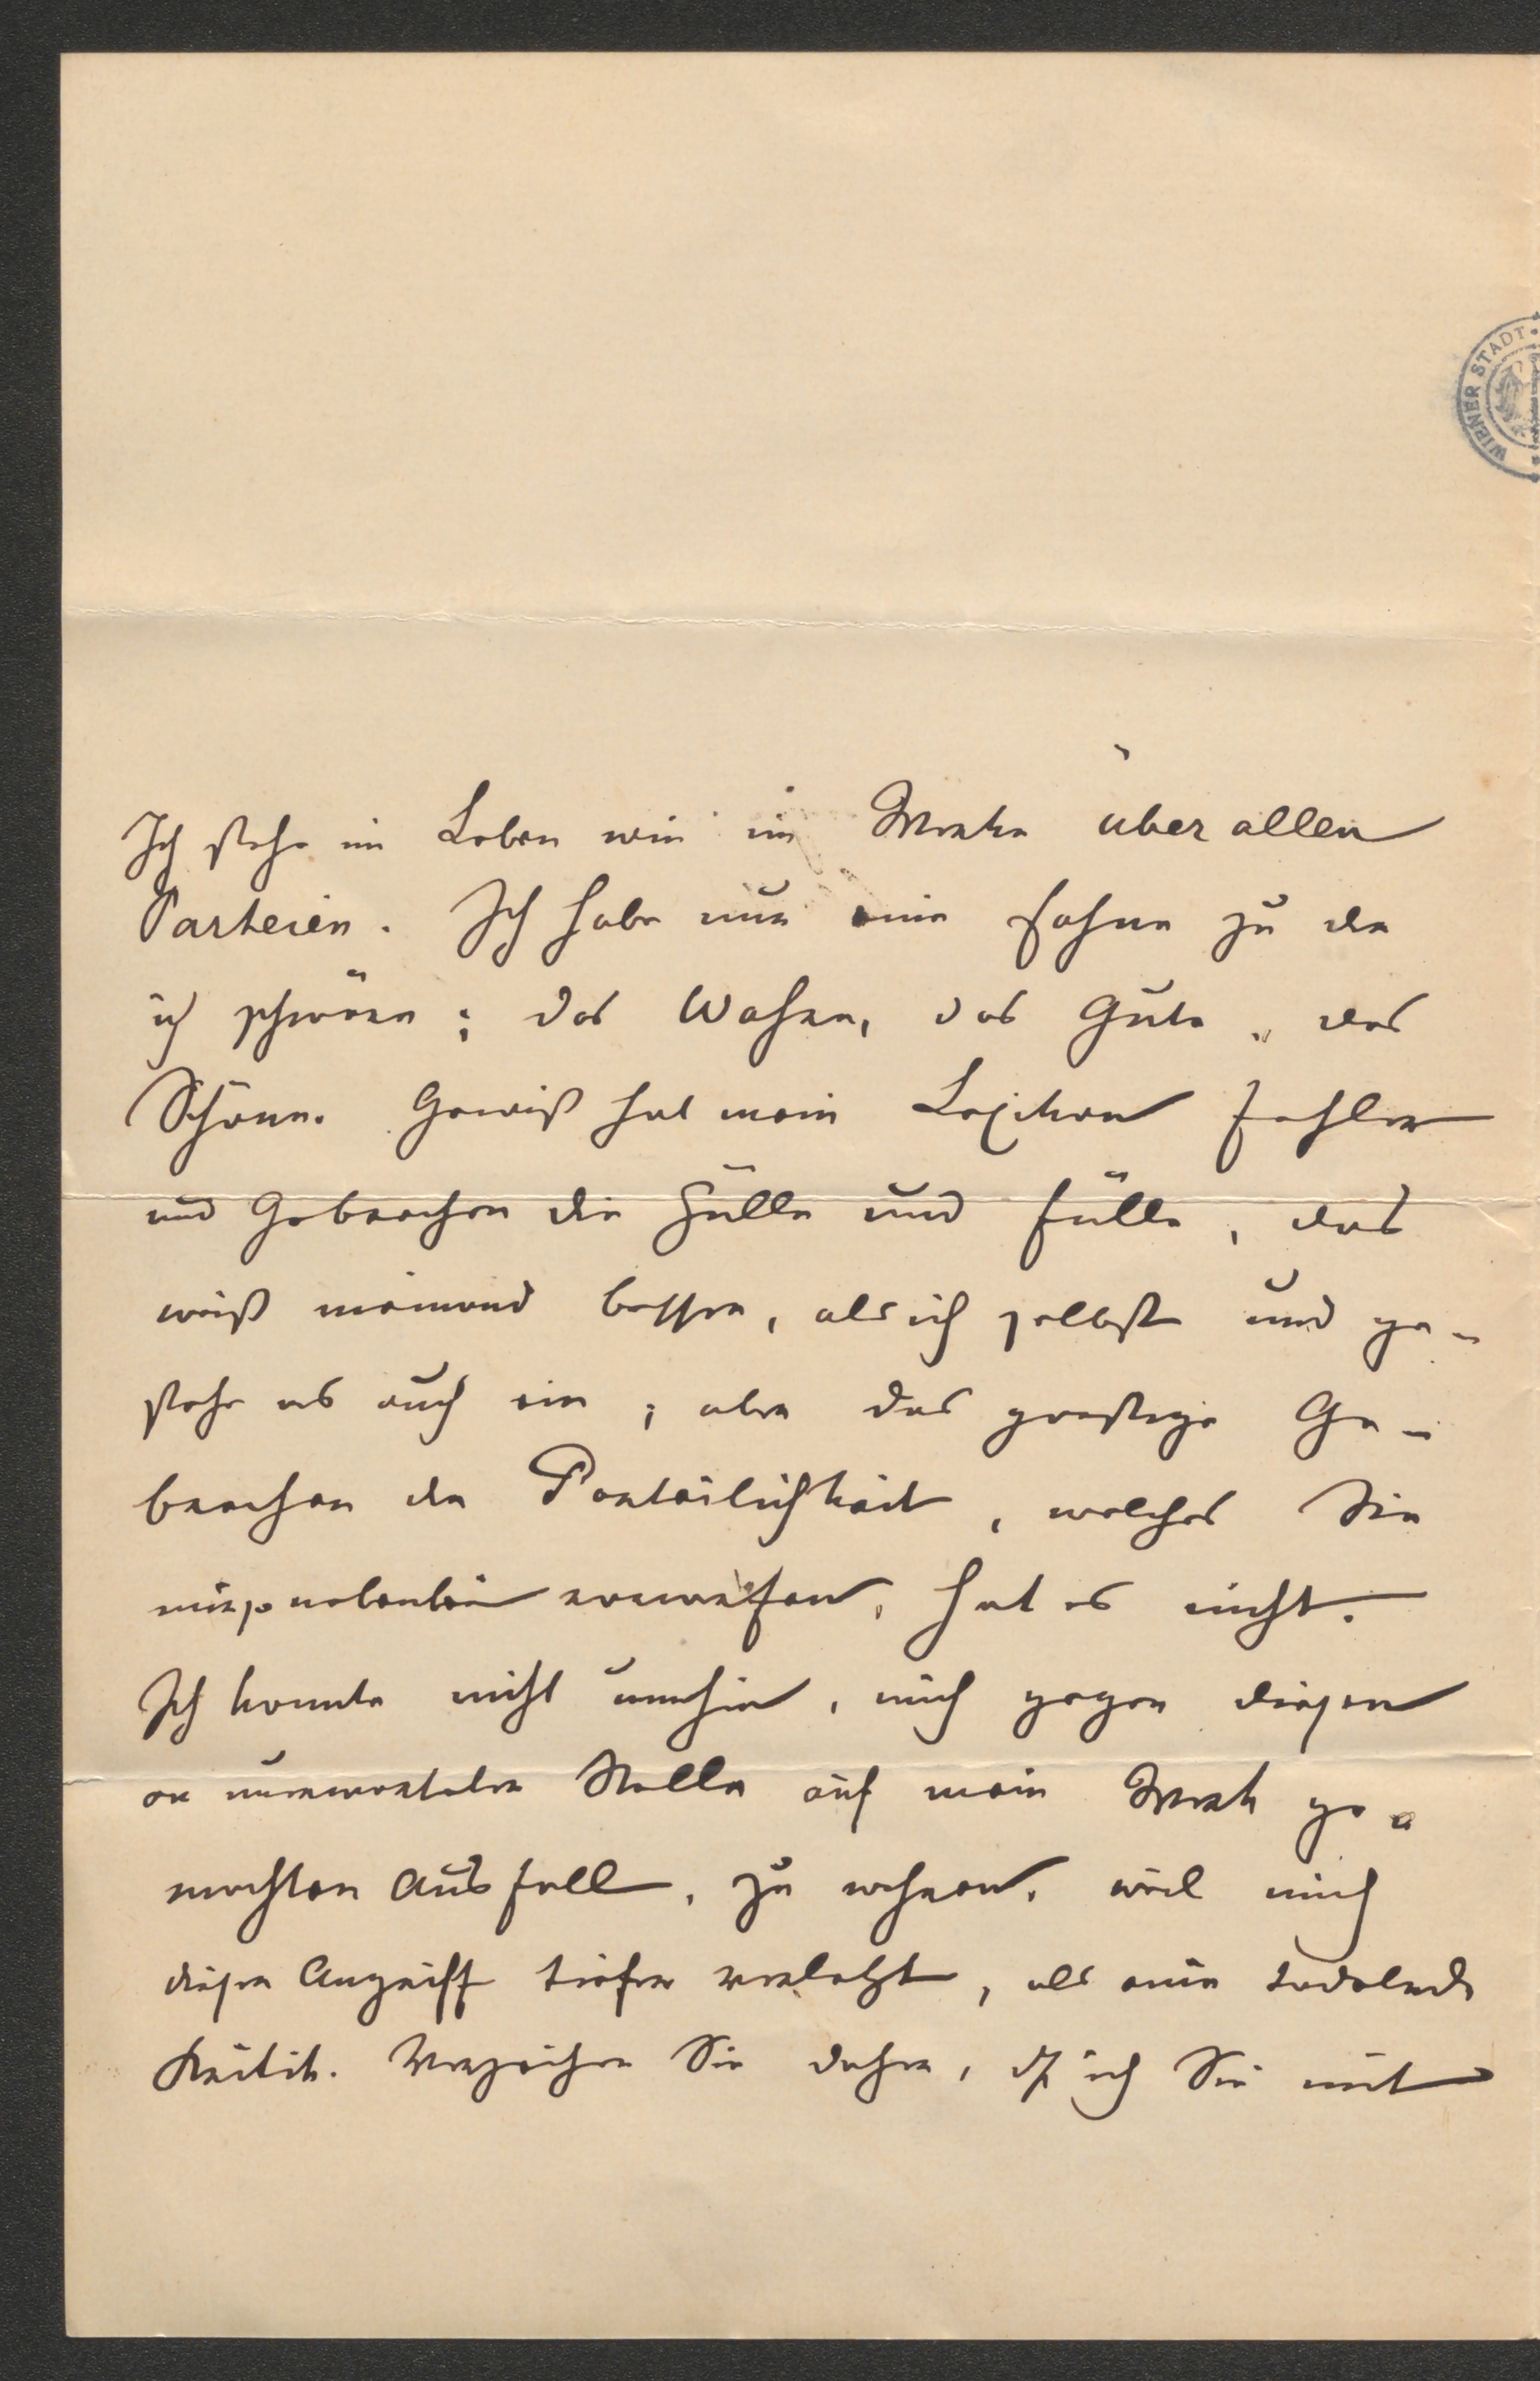 WIENER STADT
Ich stehe im Leben wie im Werke über allen
Parteien. Ich habe nur eine Fahne zu der
ich schwöre; das Wahre, das Gute, das
Schöne. Gewiß hat mein Lexikon Fehler
und Gebrechen die Hülle und Fülle, das
weiß niemand besser, als ich selbst und ge-
stehe es auch ein; aber das garstige Ge-
brechen der Parteilichkeit, welches Sie
mir so nebenbei vorwerfen, hat es nicht.
Ich konnte nicht umhin, mich gegen diesen
an unerwarteter Stelle auf mein Werk ge-
machten Ausfall, zu wehren, weil mich
dieser Angriff tiefer verletzt, als eine tadelnde
Kritik. Verzeihen Sie daher, dß ich Sie mit